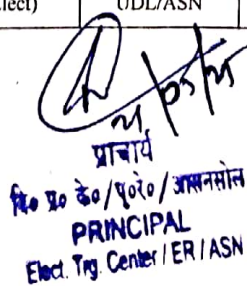 lect) UDL/ASN
21/05/25
प्राचार्य
वि० प्र० के०/पू०रे०/आसनसोल
PRINCIPAL
Elect. Trg. Center / ER / ASN